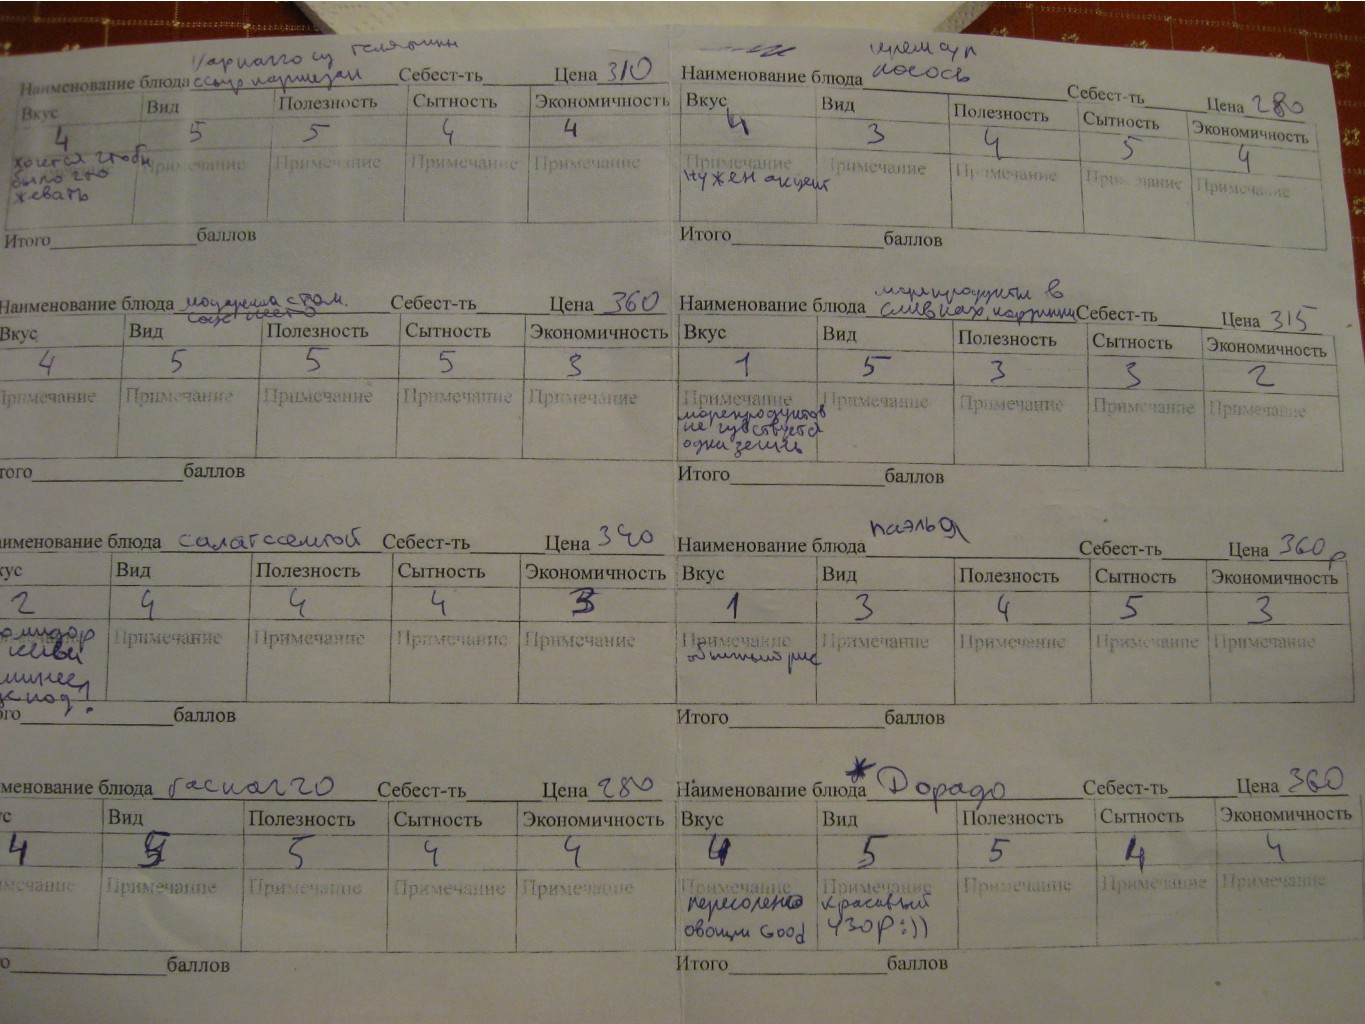 Карпаччо из телятины
Наименование блюда сыр пармезан Себест-ть Цена 310
Вкус Вид Полезность Сытность Экономичность
4 5 5 4 4
Примечание Примечание Примечание Примечание
хочется чтобы
было что
жевать
Итого баллов
крем суп
Наименование блюда лосось Себест-ть Цена 280
Вкус Вид Полезность Сытность Экономичность
4 3 4 5 4
Примечание Примечание Примечание Примечание Примечание
нужен акцент
Итого баллов
Наименование блюда моцарелла с том. Себест-ть Цена 360
соус песто
Вкус Вид Полезность Сытность Экономичность
4 5 5 5 3
Примечание Примечание Примечание Примечание Примечание
того баллов
морепродукты в
Наименование блюда сливках, Себест-ть Цена 315
Вкус Вид Полезность Сытность Экономичность
1 5 3 3 2
Примечание Примечание Примечание Примечание Примечание
морепродуктов
не чувствуется
одна зелень
Итого баллов
аименование блюда салат с семгой Себест-ть Цена 340
кус Вид Полезность Сытность Экономичность
2 4 4 4 3
Примечание Примечание Примечание Примечание
омидор
киви
ого баллов
Наименование блюда паэлья Себест-ть Цена 360р
Вкус Вид Полезность Сытность Экономичность
1 3 4 5 3
Примечание Примечание Примечание Примечание Примечание
обычный рис
Итого баллов
менование блюда гаспаччо Себест-ть Цена 280
с Вид Полезность Сытность Экономичность
4 5 5 4 4
имечание Примечание Примечание Примечание Примечание
о баллов
Наименование блюда Дорадо Себест-ть Цена 360
Вкус Вид Полезность Сытность Экономичность
4 5 5 4 4
Примечание Примечание Примечание Примечание Примечание
пересолено красивый
овощи Good узор:))
Итого баллов